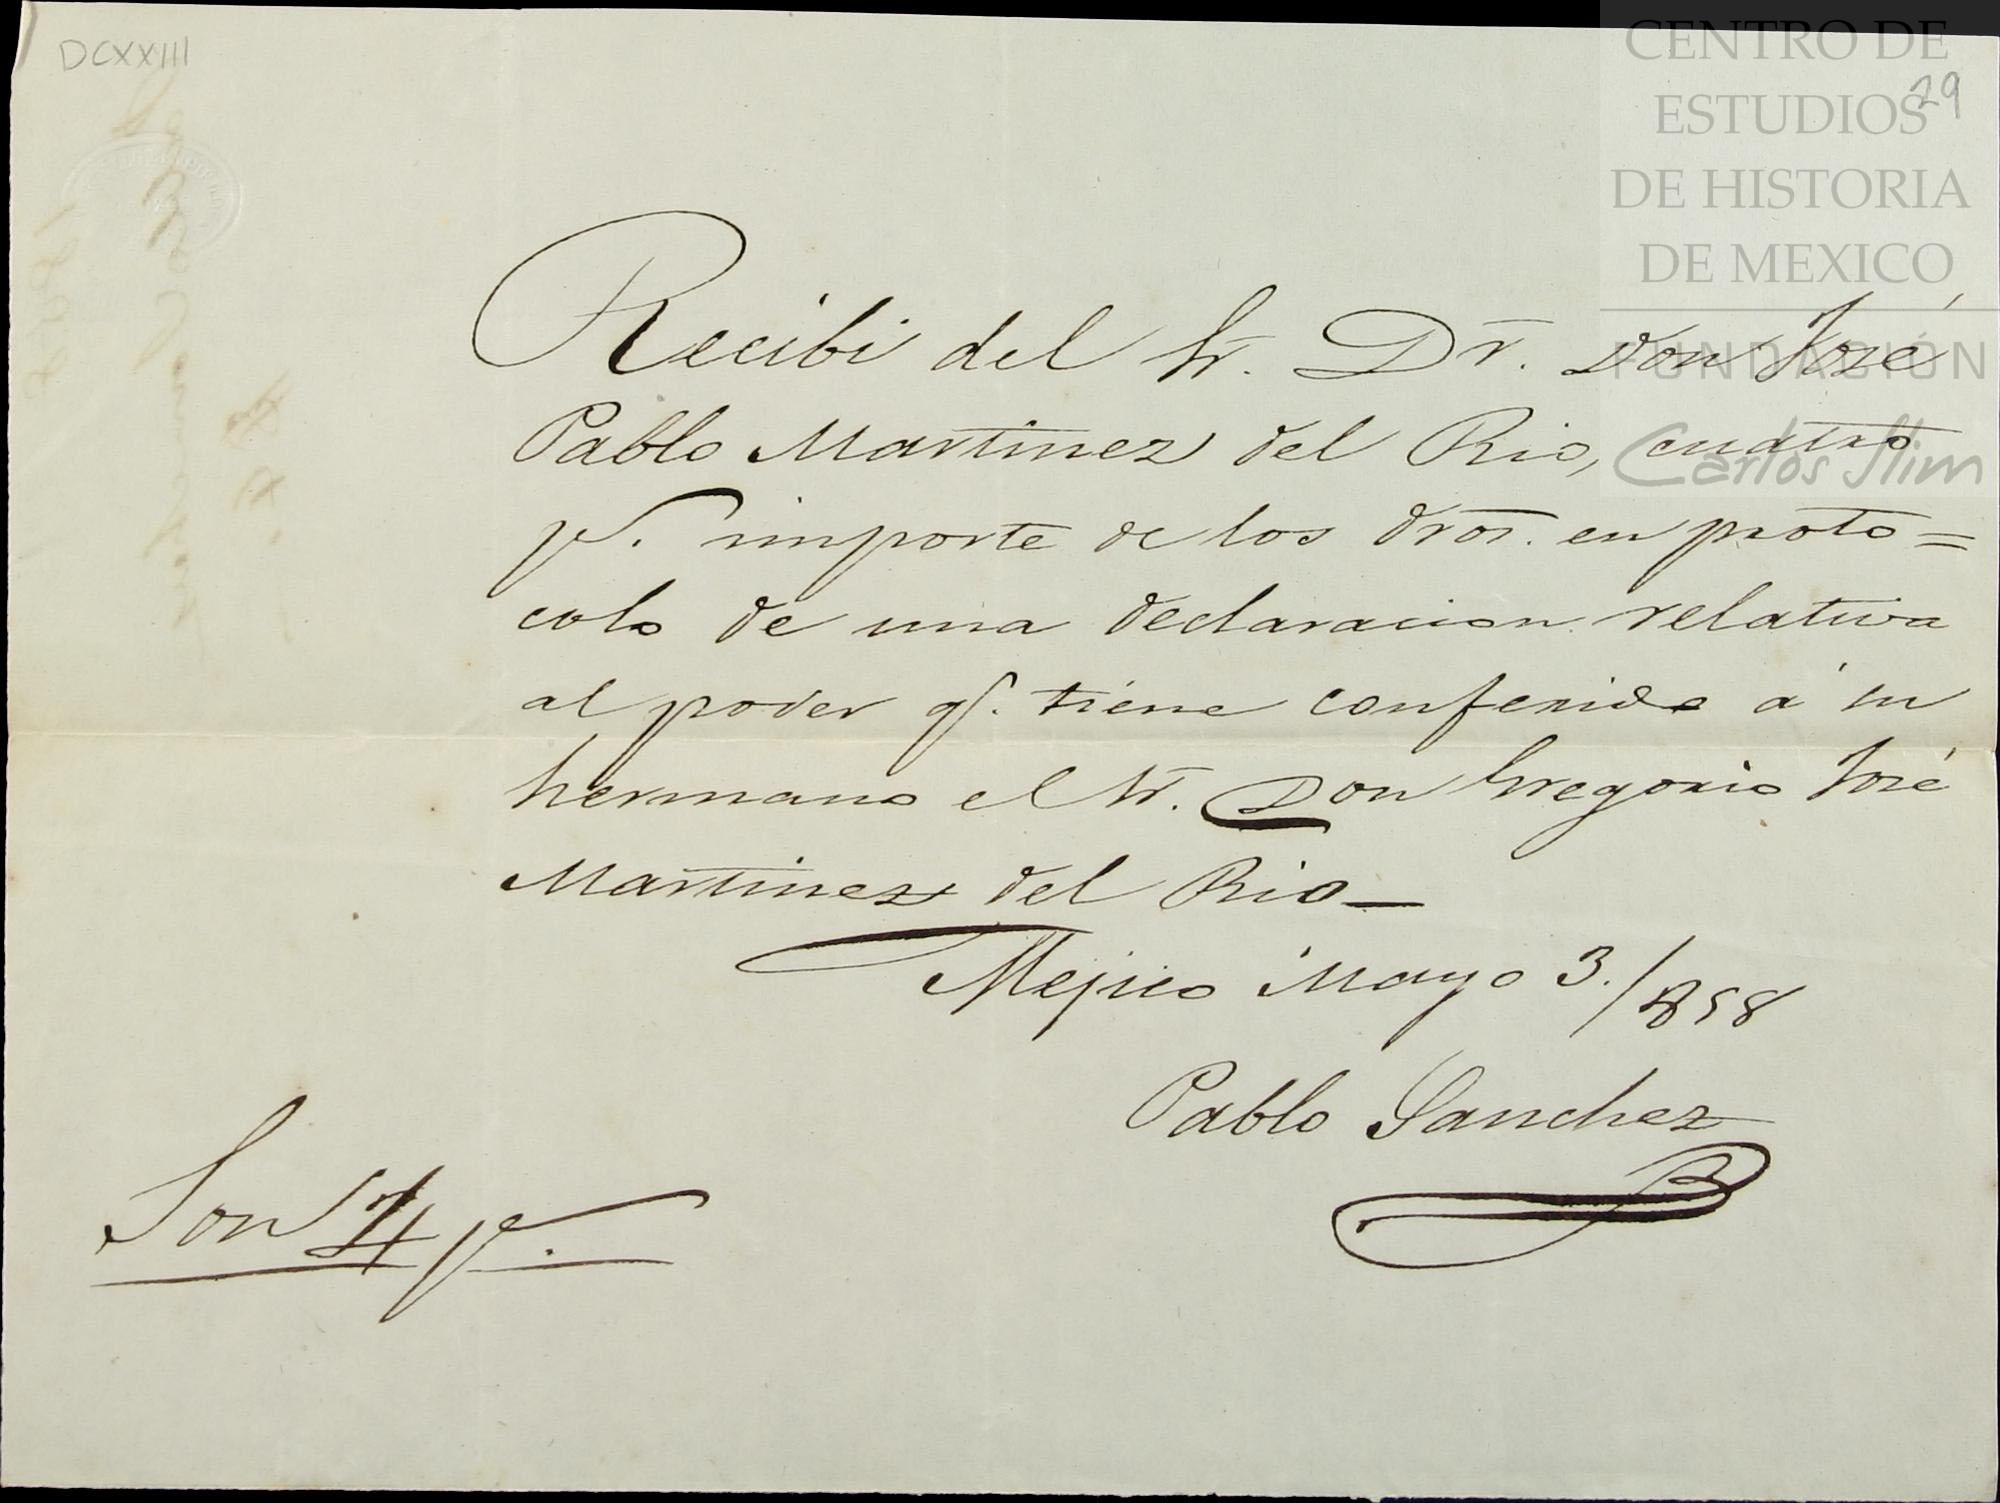 DCXXIII
CENTRO DE
ESTUDIOS
DE HISTORIA
DE MEXICO
FUNDACIÓN
Carlos Slim
29
Recibi del Sr. Dr. Don José
Pablo Martinez del Rio, cuatro
p. importe de los dros. en proto=
colo de una declaracion relativa
al poder q. tiene conferido á su
hermano el Sr. Don Gregorio José
Martinez del Rio—
Mejico Mayo 3./858
Pablo Sanchez
Son 4 p.